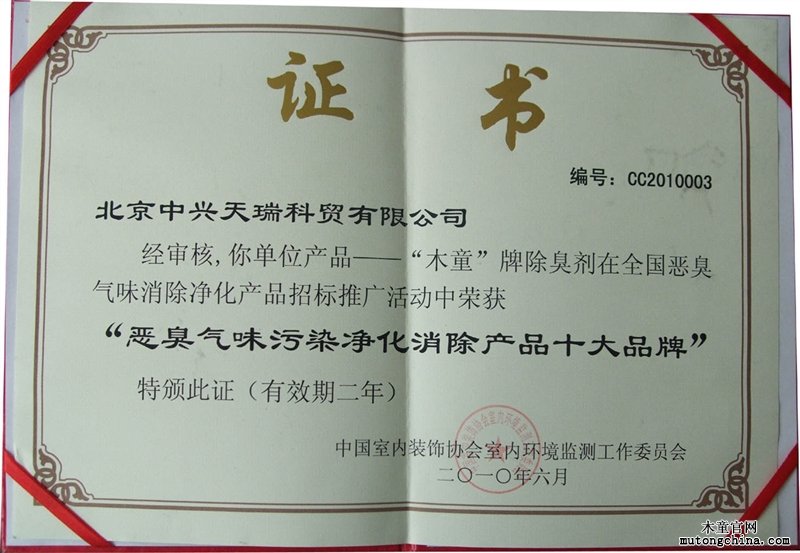 证 书
编号：CC2010003
北京中兴天瑞科贸有限公司
经审核，你单位产品——“木童”牌除臭剂在全国恶臭
气味消除净化产品招标推广活动中荣获
“恶臭气味污染净化消除产品十大品牌”
特颁此证（有效期二年）
中国室内装饰协会室内环境监测工作委员会
二〇一〇年六月
木童官网
mutongchina.com